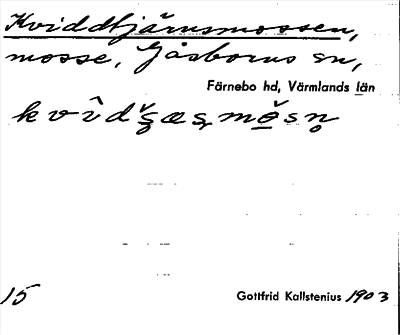 Kviddtjärnsmossen,
mosse, Gåsborns sn,
Färnebo hd, Värmlands län
15
Gottfrid Kallstenius 1903